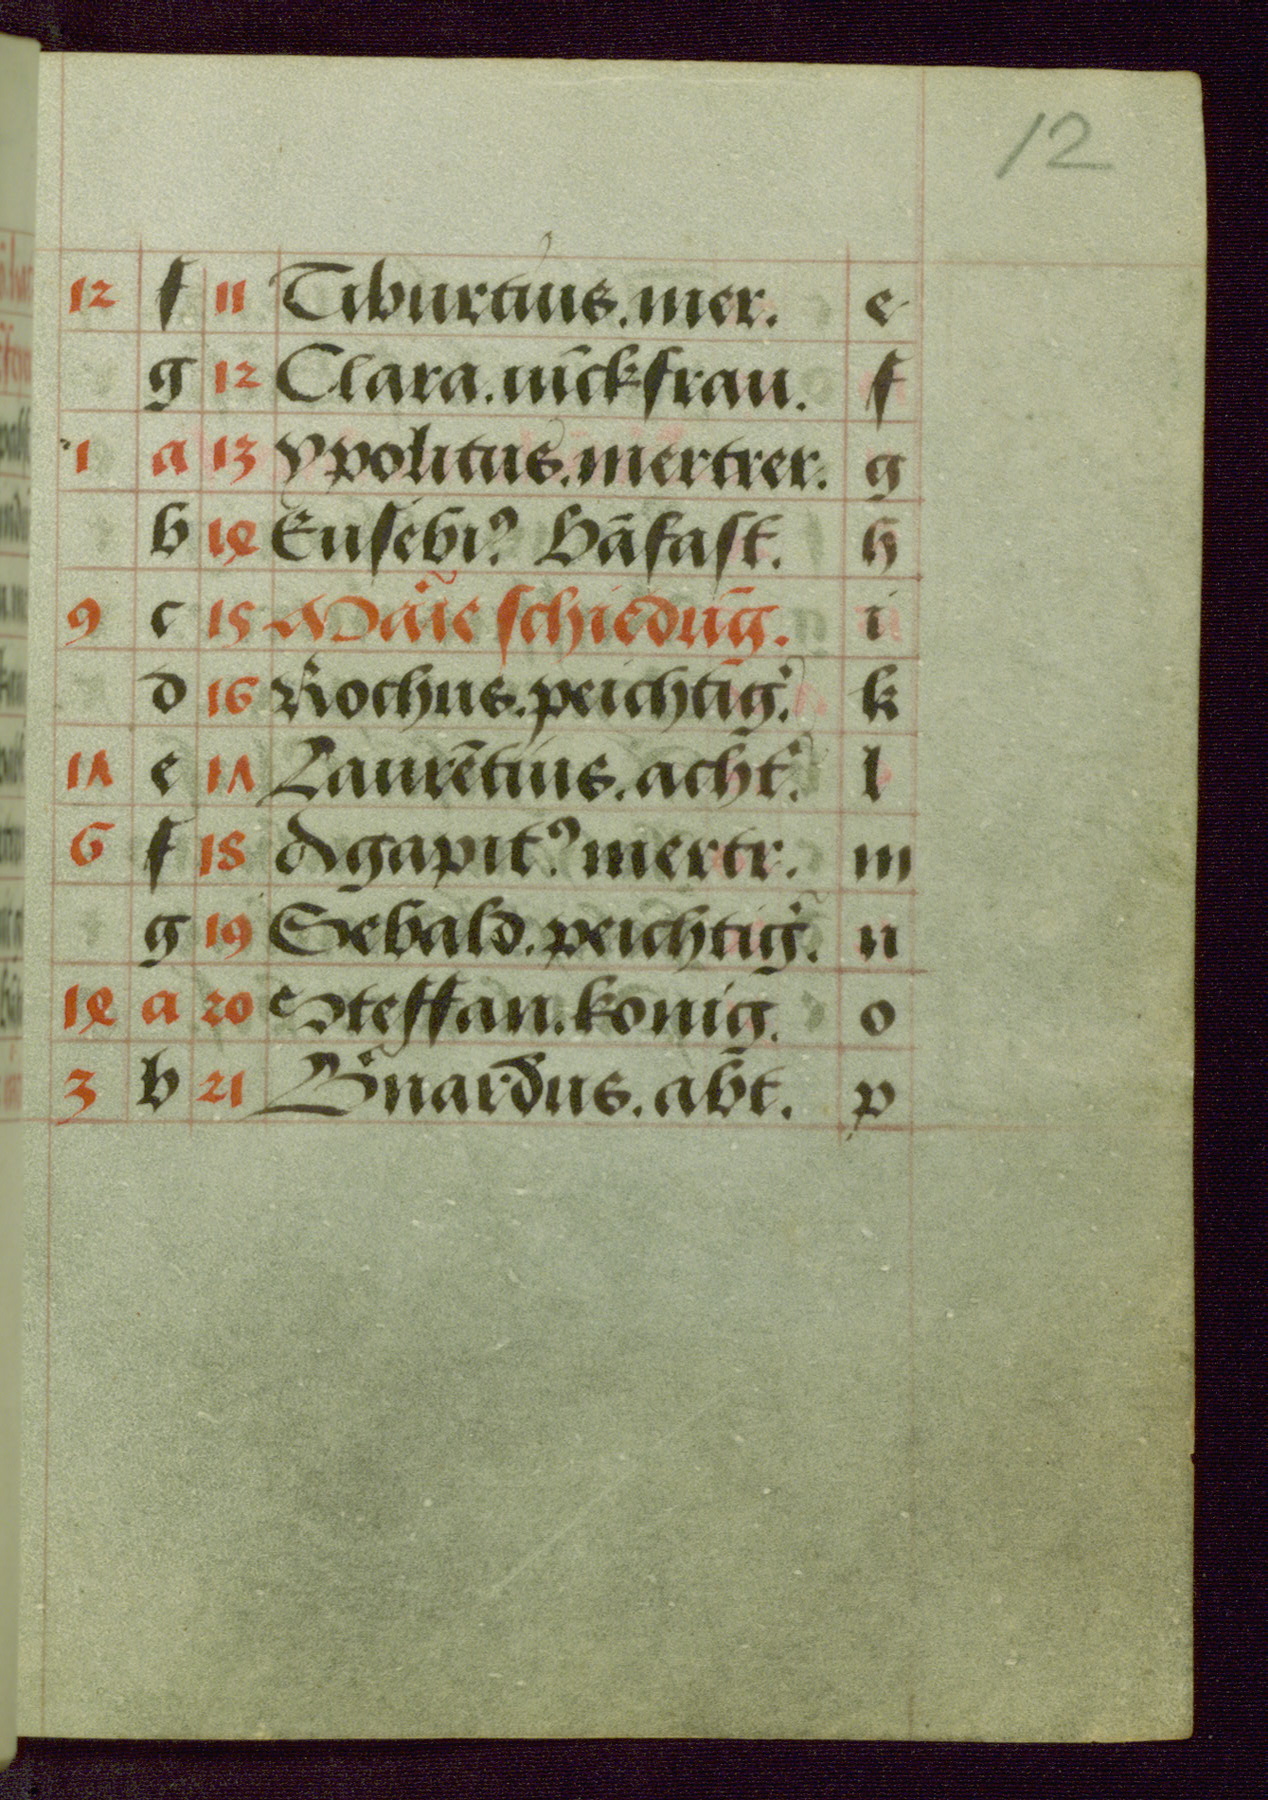 12
12 f 11 Tiburtius. mer. e
g 12 Clara. iūckfrau. f
1 a 13 ypolitus. mertrer. g
b 14 Eusebi⁹ Vn̄fast. h
9 c 15 Marie schiedūg. i
d 16 Rochus. peichtig̃. k
17 e 17 Laurētius. acht. l
6 f 18 Agapit⁹ mertr. m
g 19 Sebald. peichtig̃. n
14 a 20 Steffan. konig. o
3 b 21 Bnardus. abt. p